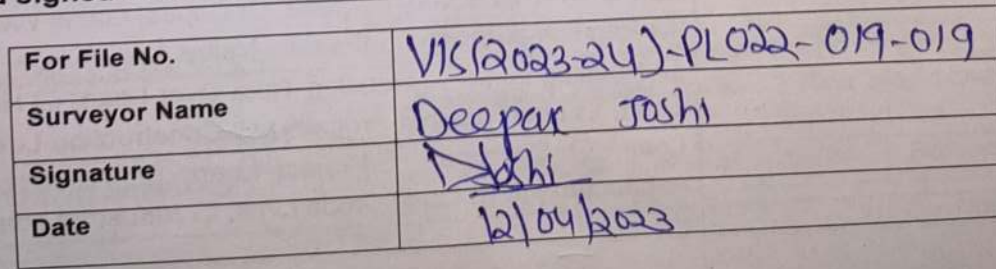 For File No. VIS(2023-24)-PL022-019-019
Surveyor Name Deepak Joshi
Signature DJoshi
Date 12/04/2023